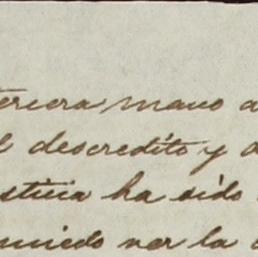 tercera mano a
l descredito y d
sticia ha sido
miedo ver la